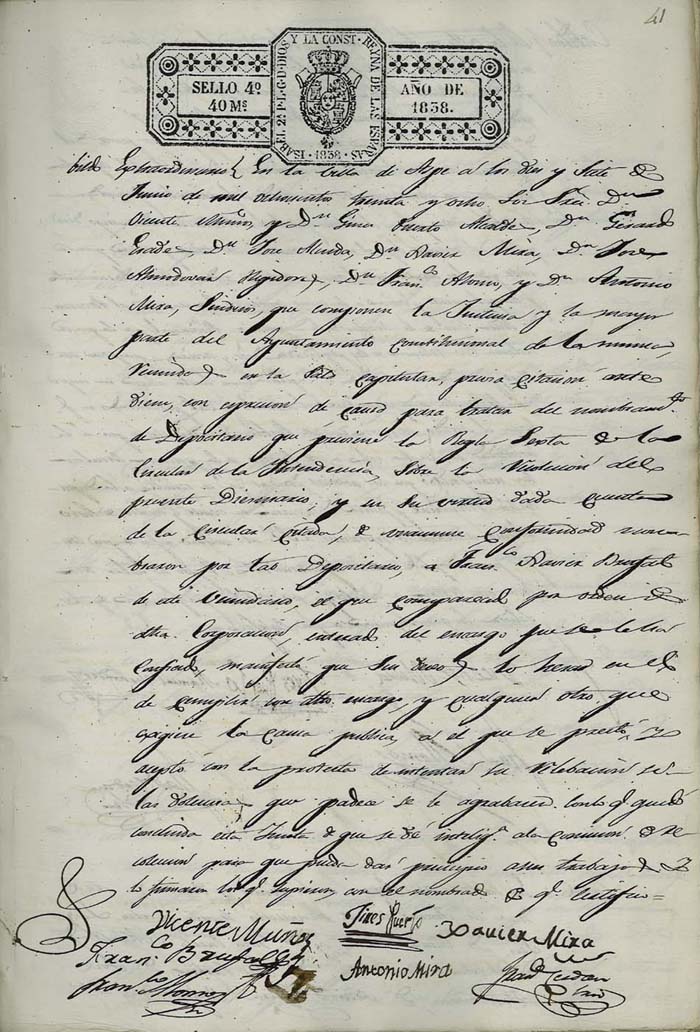 41
ISABEL 2ª P.L.G.D. DIOS Y LA CONST. REYNA DE LAS ESPAÑAS
SELLO 4º
40 Ms
AÑO DE
1838.
1838
bildo Extraordinario En la Villa de Aspe á los diez y siete de
Junio de mil ochocientos treinta y ocho. Los Sres. Dn.
Vicente Muñoz, y Dn. Gines Puerto Alcaldes, Dn. Gerardo
Dn. Jose Dn. Xavier Mira, Dn. Jose
Almodovar Regidores, Dn. Franco. Alonso, y Dn. Antonio
Mira, Sindicos, que componen la Justicia y la mayor
parte del Ayuntamiento Constitucional de la misma,
reunidos en la Sala Capitular, previa citacion ante
diem, con expresion de causa para tratar del nombramto.
de Depositario que previene la Regla Sexta de la
Circular de la Intendencia, sobre la
presente y en su virtud dada cuenta
de la Circular citada, de unanime conformidad nom-
braron por tal Depositario, a Franco. Xavier Brufal
de este Vecindario, el que comparecio por orden de
dha. Corporacion, enterado del encargo que se le ha
confiado, manifestó que sus deseos lo hacen en el
de cumplir con dicho encargo, y cualquiera otro que
exigiere la causa publica, á el que se prestó y
aceptó con la protesta de intentar su relebacion si
las dolencias que padece se le agrabasen. Con lo q. quedó
concluida esta Junta de que se dé intelig.ª a la comision de re
coleccion para que pueda dar principio a sus trabajos y
lo firmaron los q. supieron, con el nombrado de q. Certifico=
Vicente Muñoz
Gines Puerto
Xavier Mira
Franco. Brufal
Antonio Mira
Franco. Alonso